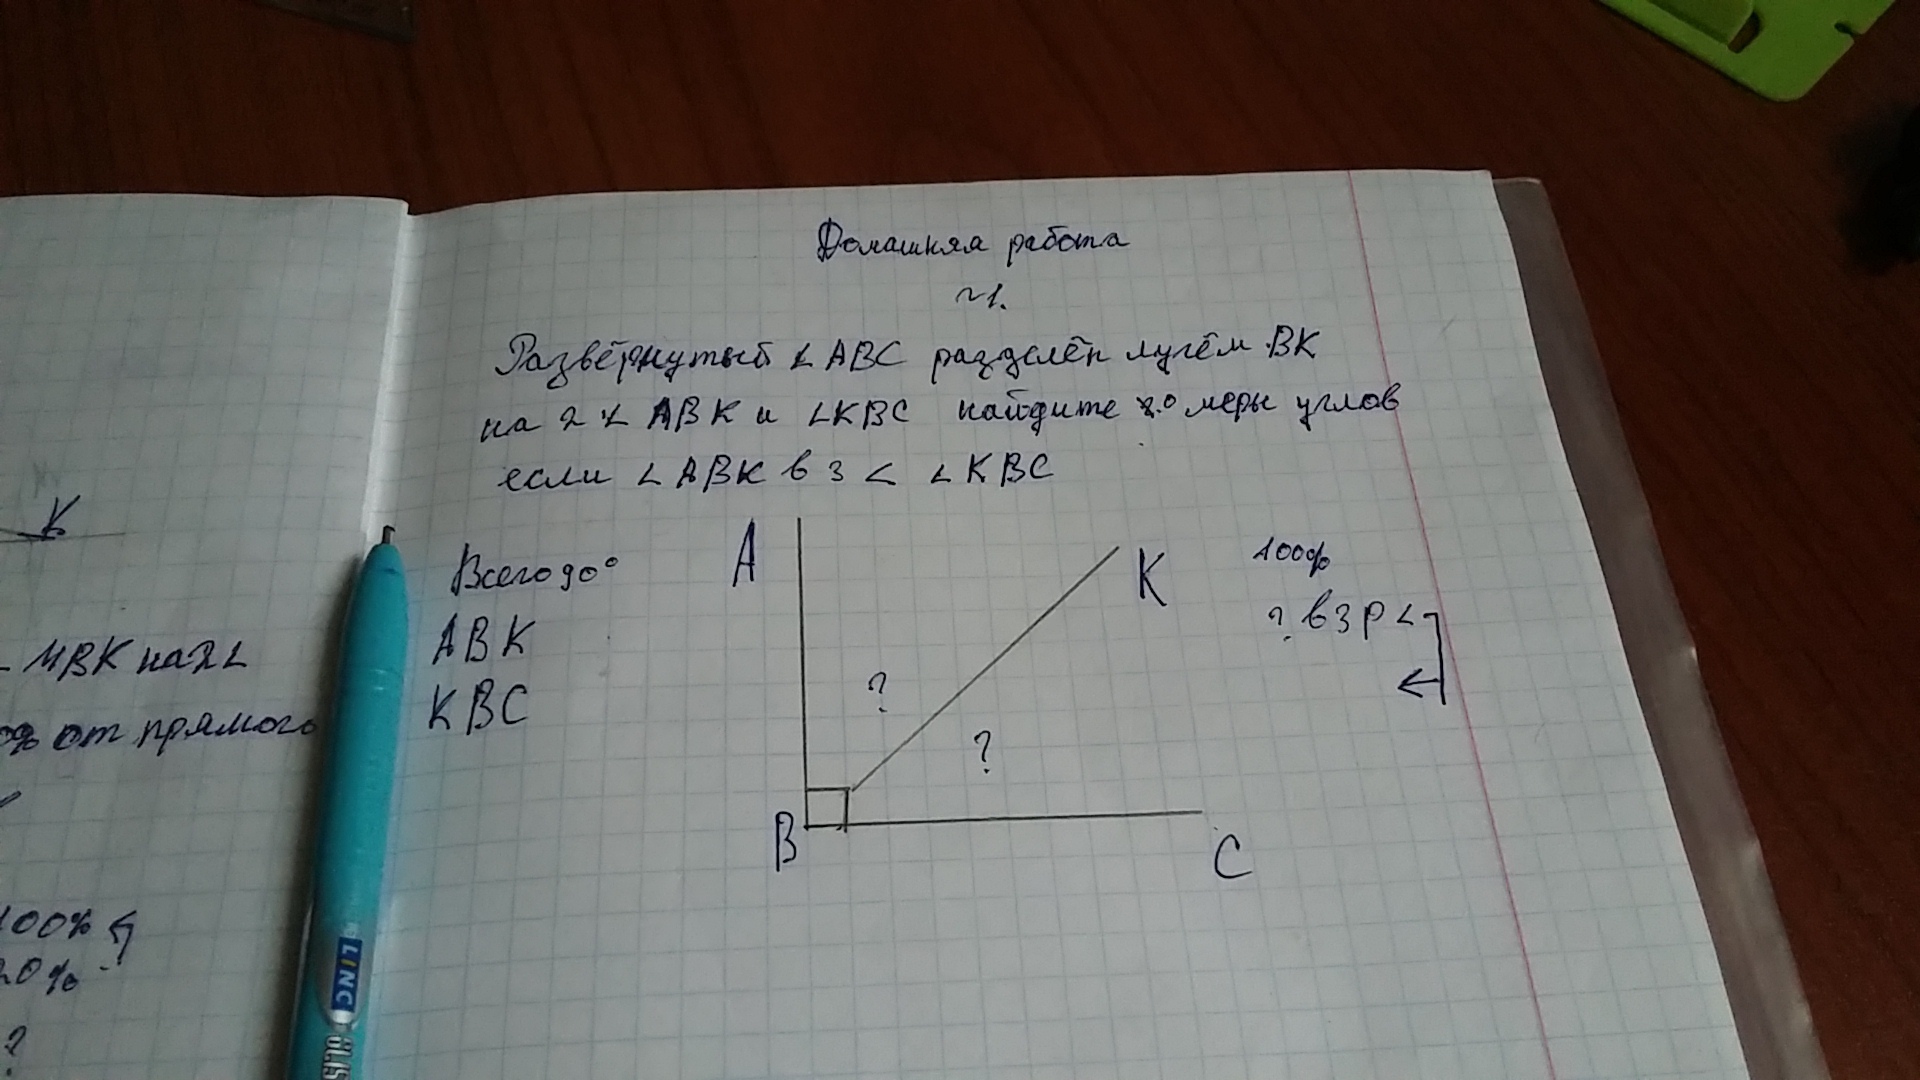 Домашняя работа
~1.
Развёрнутый ∠ ABC разделён лучём BK
на 2 ∠ ABK и ∠KBC найдите г.о меры углов
если ∠ ABK в 3 < ∠ KBC
K
A
K
Всего 90°
100%
ABK
? в 3 р <
KBC
?
?
B
C
MBK на 2 ∠
от прямого
100%
20%
?
LINC